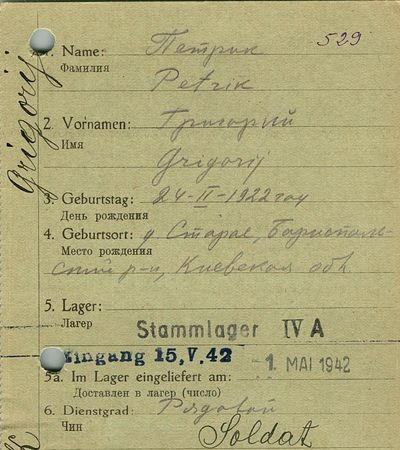 529
1. Name: Петрик
Фамилия
Petrik
2. Vornamen: Григорий
Имя
Grigorij
Grigorij
3. Geburtstag: 24-II-1922 год
День рождения
4. Geburtsort: д Старое, Борисполь-
Место рождения
ский р-н, Киевская обл.
5. Lager:
Лагер
Stammlager IV A
Eingang 15. V. 42
- 1. MAI 1942
5a. Im Lager eingeliefert am:
Доставлен в лагер (число)
6. Dienstgrad: Рядовой
Чин
Soldat